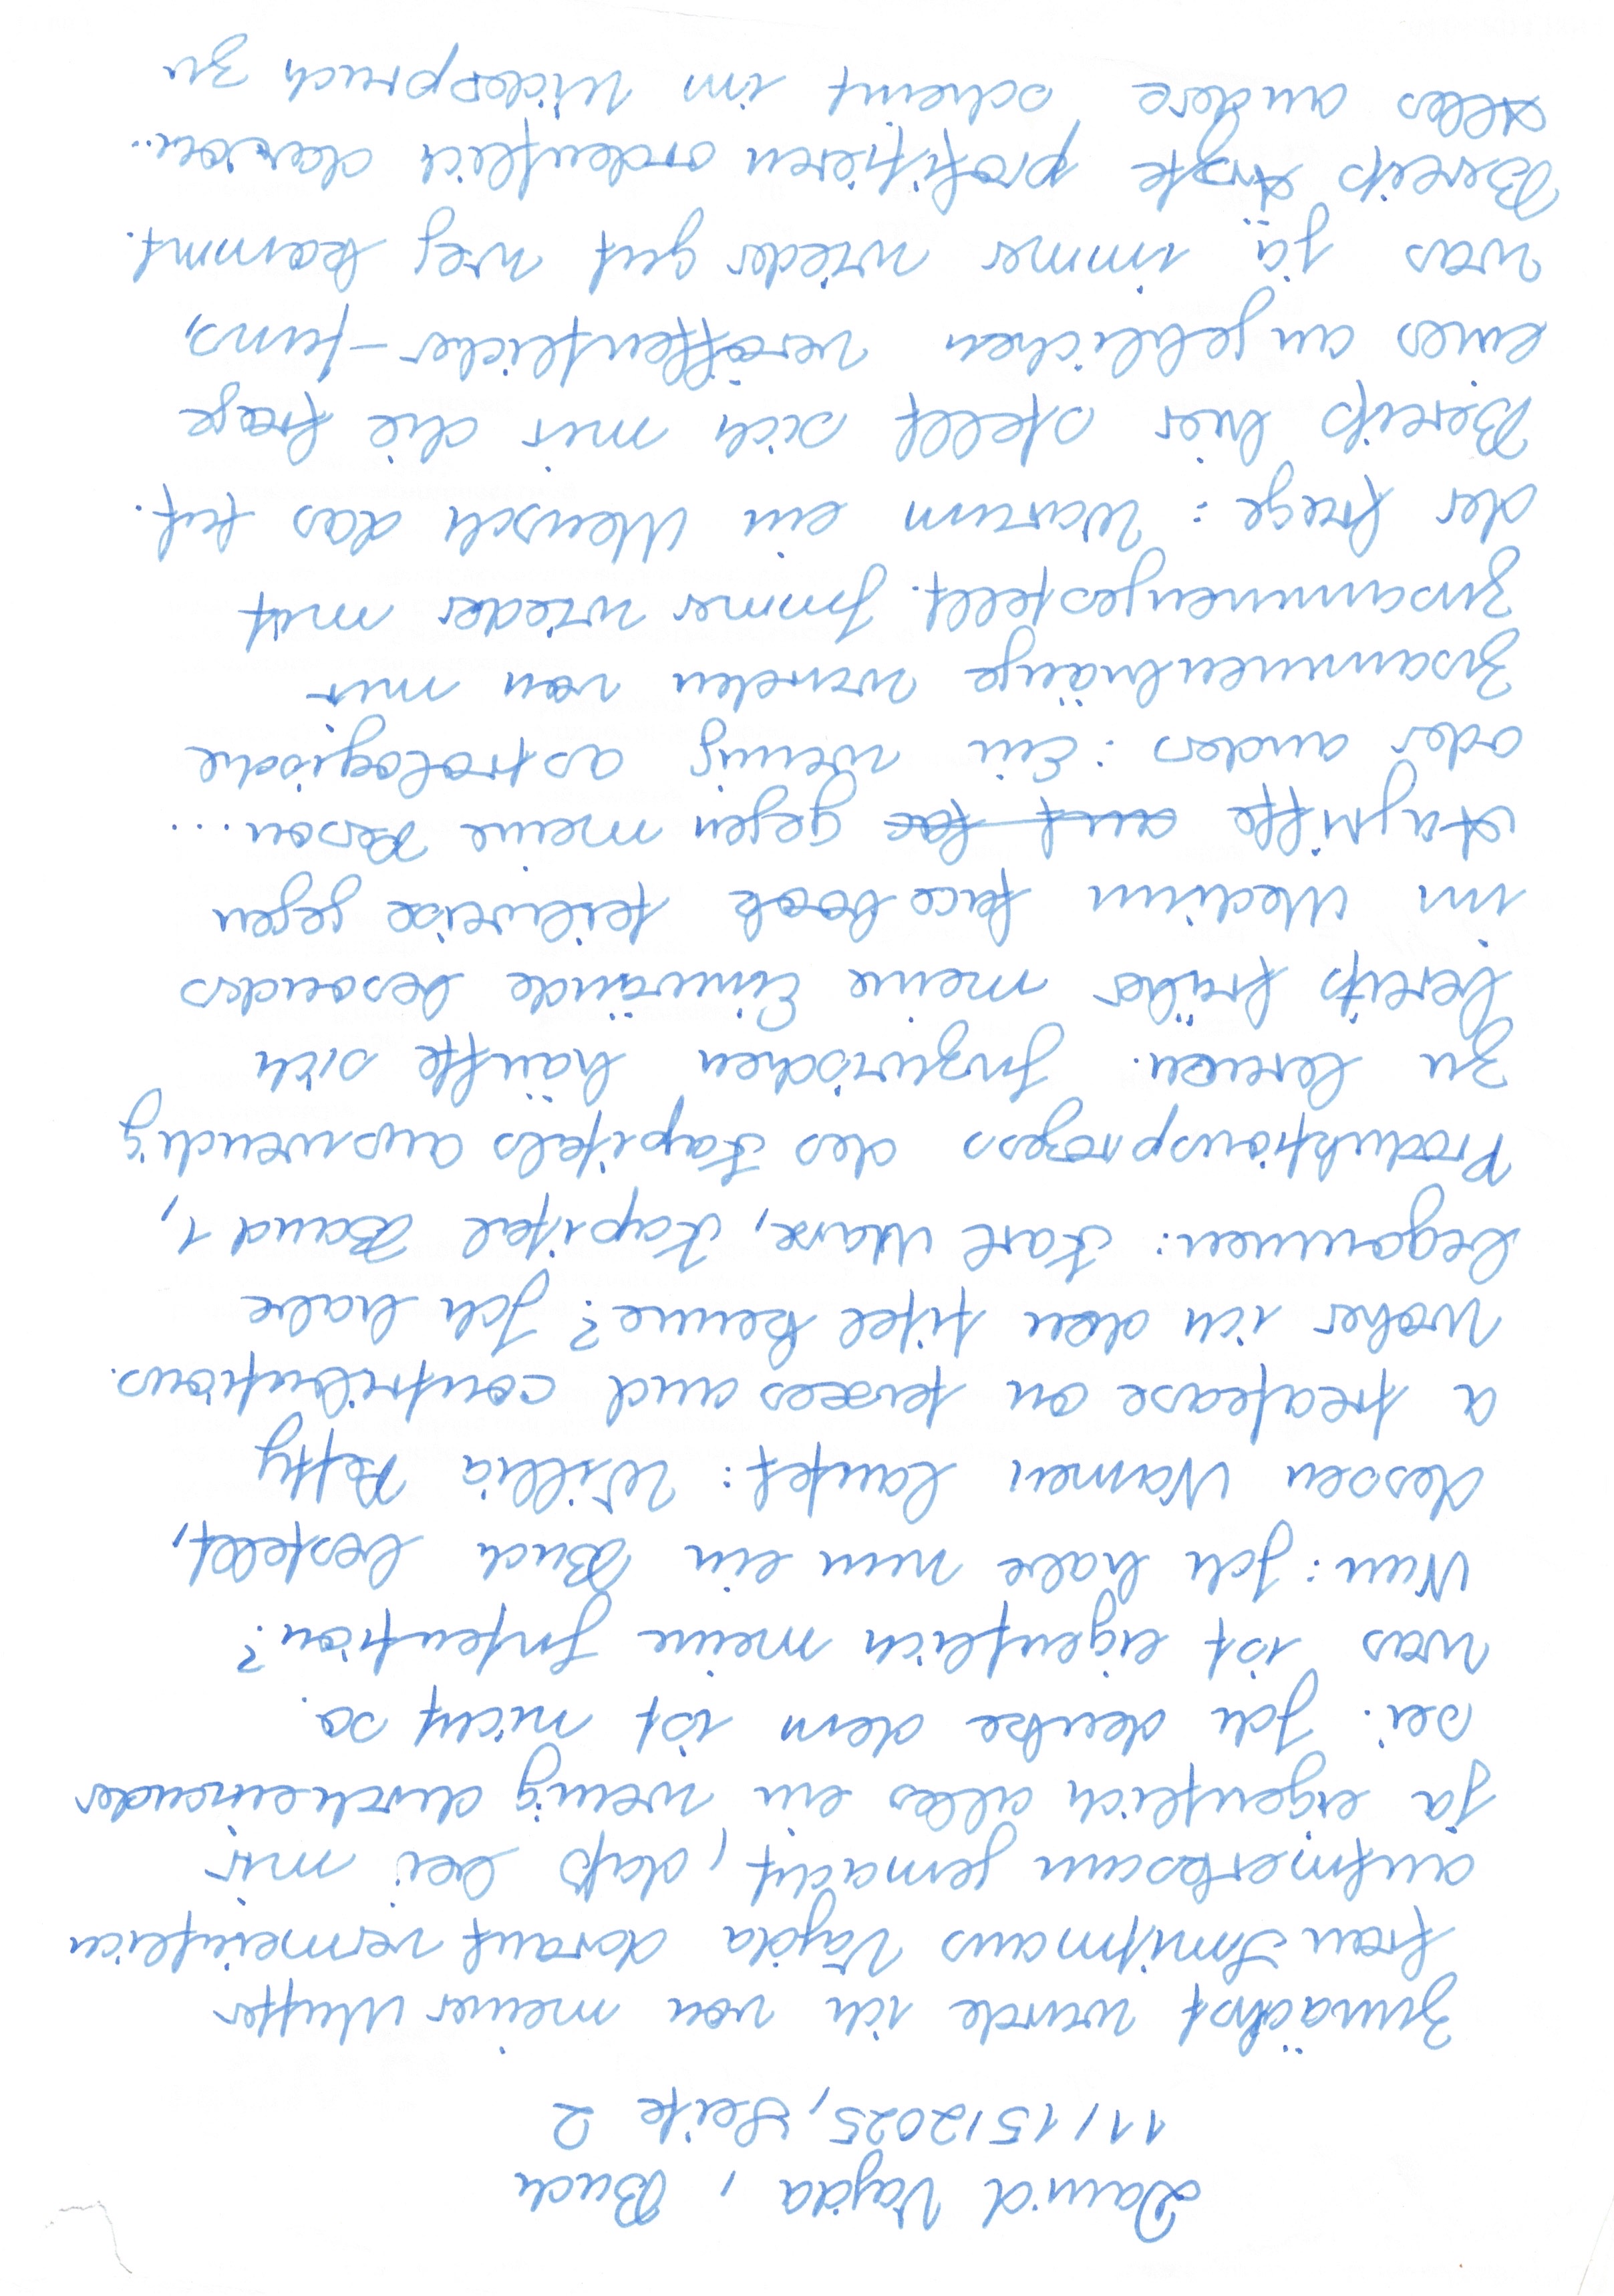 David Vajda, Buch
11/15/2025, Seite 2
Zunächst wurde ich von meiner Mutter
frau Smitmans Vajda darauf vermeintlich
aufmerksam gemacht, daß bei mir
ja eigentlich alles ein wenig durcheinander
sei. Ich denke dem ist nicht so.
was ist eigentlich meine Intention?
Nun: Ich habe nun ein Buch bestellt,
dessen Namen lautet: Willia Petty
a treatease on taxes and contributions.
Woher ich den titel kenne? Ich habe
begonnen: Karl Marx, Kapital Band 1,
Produktionsprozess des Kapitals auswendig
zu lernen. Inzwischen häufte sich
bereits früher meine Einwände besonders
im Medium facebook teilweise gegen
Angriffe auf fac gegen meine Person...
oder anders: Ein wenig astrologische
Zusammenhänge wurden von mir
Zusammengestellt. Immer wieder mit
der frage: Warum ein Mensch das tut.
Bereits hier stellt sich mir die frage
eines angeblichen veröffentlicher-tums,
was ja immer wieder gut weg kommt.
Bereits Ärzte profitieren ordentlich davon..
Alles andere scheint im Widerspruch zu